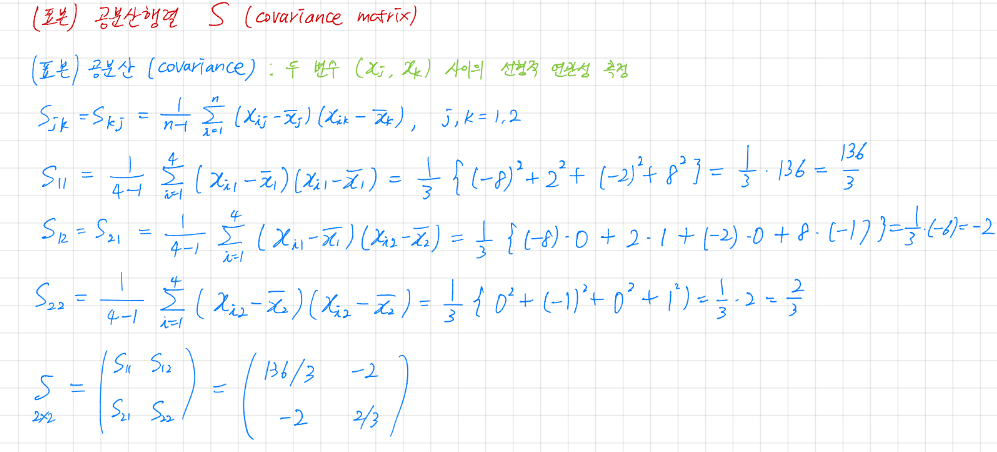 (표본) 공분산행렬 S (covariance matrix)
(표본) 공분산 (covariance) : 두 변수 (x_j, x_k) 사이의 선형적 연관성 측정
S_{jk} = S_{kj} = \frac{1}{n-1} \sum_{i=1}^{n} (x_{ij} - \bar{x}_j)(x_{ik} - \bar{x}_k), j, k = 1, 2
S_{11} = \frac{1}{4-1} \sum_{i=1}^{4} (x_{i1} - \bar{x}_1)(x_{i1} - \bar{x}_1) = \frac{1}{3} {(-8)^2 + 2^2 + (-2)^2 + 8^2} = \frac{1}{3} · 136 = \frac{136}{3}
S_{12} = S_{21} = \frac{1}{4-1} \sum_{i=1}^{4} (x_{i1} - \bar{x}_1)(x_{i2} - \bar{x}_2) = \frac{1}{3} {(-8)·0 + 2·1 + (-2)·0 + 8·(-1)} = \frac{1}{3}·(-6) = -2
S_{22} = \frac{1}{4-1} \sum_{i=1}^{4} (x_{i2} - \bar{x}_2)(x_{i2} - \bar{x}_2) = \frac{1}{3} {0^2 + (-1)^2 + 0^2 + 1^2) = \frac{1}{3} · 2 = \frac{2}{3}
S_{2×2} = \begin{pmatrix} S_{11} & S_{12} \\ S_{21} & S_{22} \end{pmatrix} = \begin{pmatrix} 136/3 & -2 \\ -2 & 2/3 \end{pmatrix}